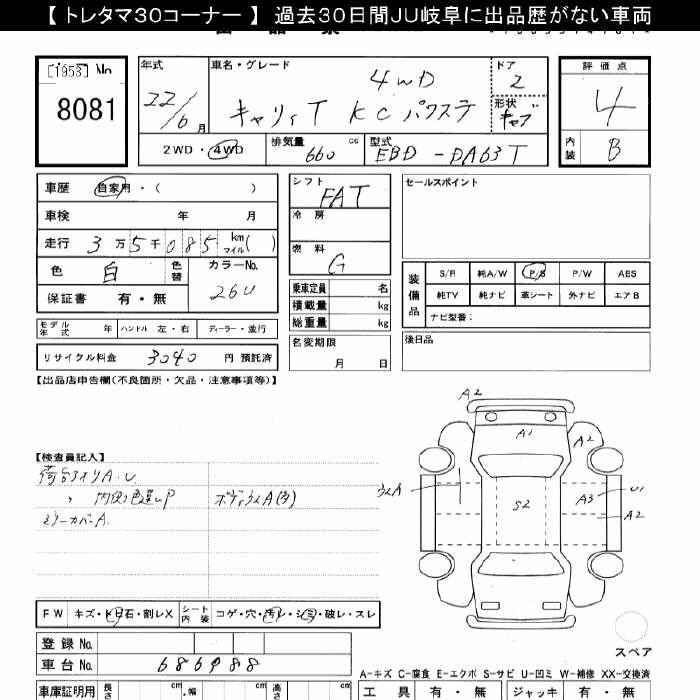 【 トレタマ30コーナー 】 過去30日間JU岐阜に出品歴がない車両
[1958] No.
8081
年式
22/6月
車名・グレード
4WD
キャリィT KC パワステ
ドア
2
形状
キャブ
評価点
4
内装
B
2WD・4WD
排気量
660 cc
型式
EBD-DA63T
車歴 自家用・( )
車検 年 月
走行 3万5千085 km マイル( )
色 白 色替
カラーNo.
26U
保証書 有・無
モデル年式 年 ハンドル 左・右 ディーラー・並行
リサイクル料金 3040 円 預託済
シフト
FAT
冷房
燃料
G
乗車定員 名
積載量 kg
総重量 kg
名変期限
月 日
セールスポイント
装備品
S/R 純A/W P/S P/W ABS
純TV 純ナビ 革シート 外ナビ エアB
ナビ型番:
後日品
【出品店申告欄(不良箇所・欠品・注意事項等)】
【検査員記入】
荷台アオリA.U
〃 内側色褪せP
ボディウスA(多)
ミラーカバーA
A2
A1
A2
ウスA
S2
A3
U1
A2
スペア
FW キズ・トビ石・割レX シート内装 コゲ・穴・汚レ・シミ・破レ・スレ
登録No.
車台No. 686988
A-キズ C-腐食 E-エクボ S-サビ U-凹ミ W-補修 XX-交換済
車庫証明用 長さ cm 幅 cm 高さ cm
工具 有・無 ジャッキ 有・無